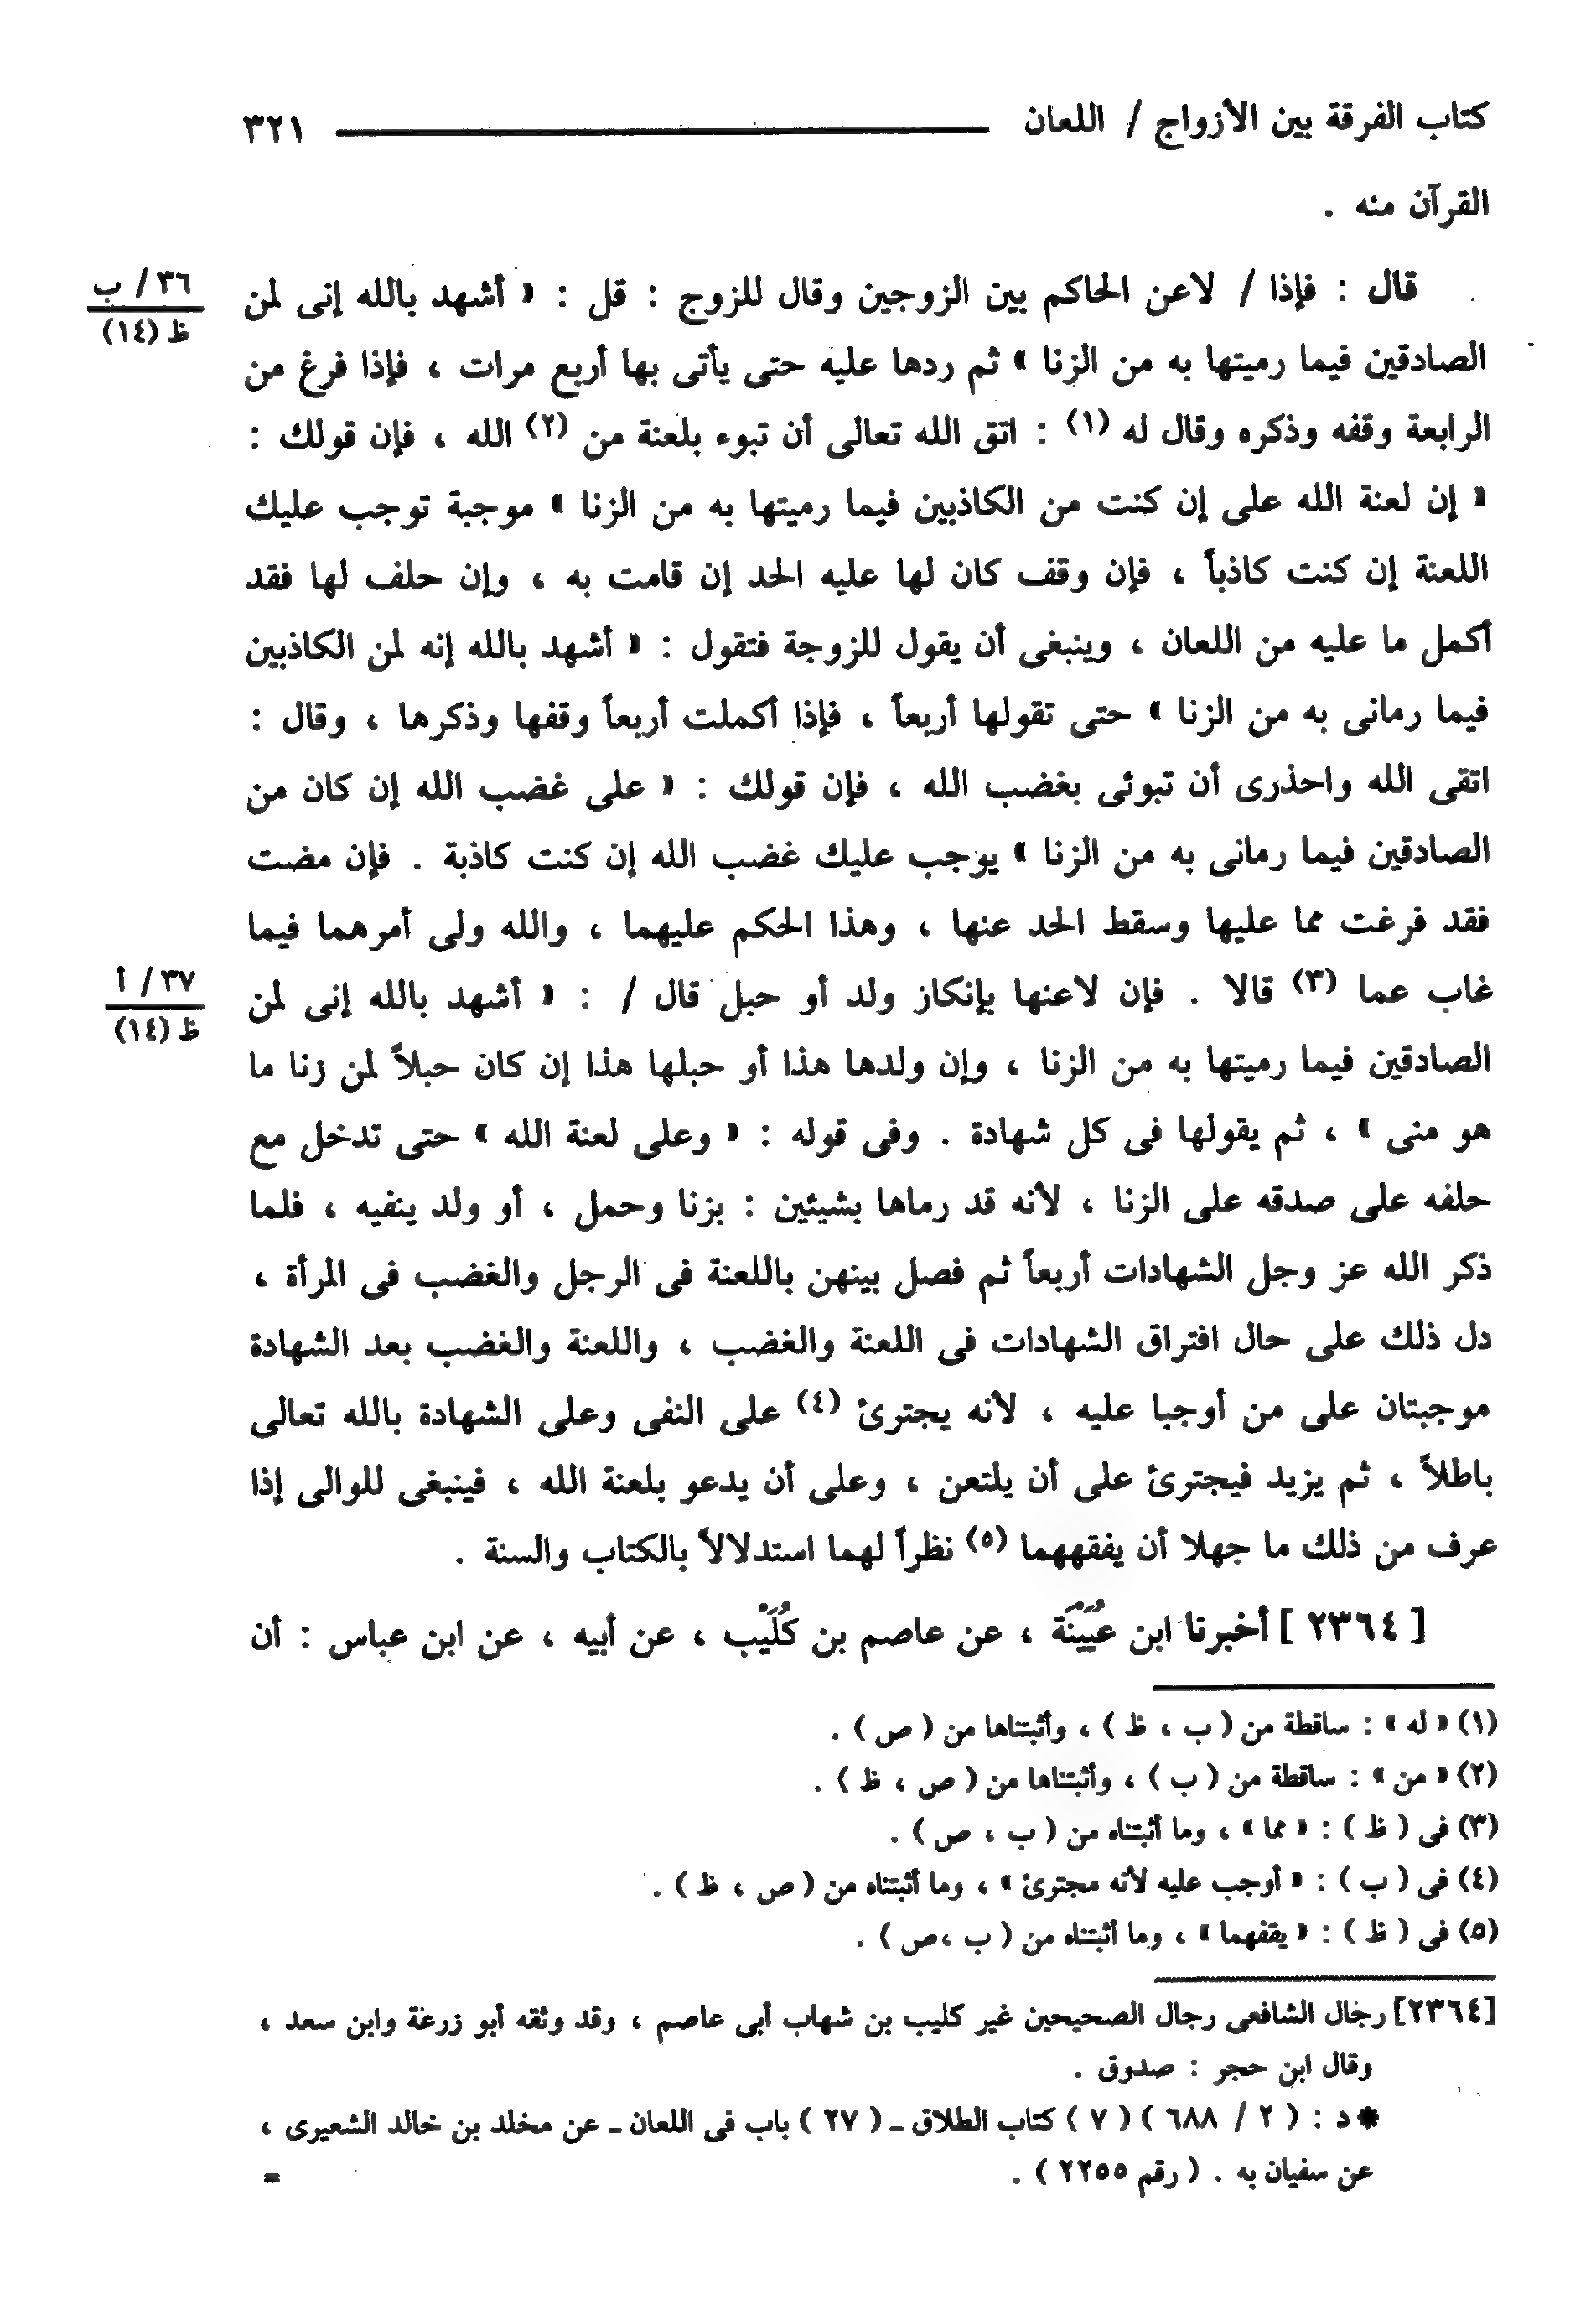 كتاب الفرقة بين الأزواج / اللعان ٣٢١
القرآن منه .
قال : فإذا / لاعن الحاكم بين الزوجين وقال للزوج : قل : « أشهد بالله إنى لمن
٣٦ / ب
ظ (١٤)
الصادقين فيما رميتها به من الزنا » ثم ردها عليه حتى يأتى بها أربع مرات ، فإذا فرغ من
الرابعة وقفه وذكره وقال له (١) : اتق الله تعالى أن تبوء بلعنة من (٢) الله ، فإن قولك :
« إن لعنة الله على إن كنت من الكاذبين فيما رميتها به من الزنا » موجبة توجب عليك
اللعنة إن كنت كاذباً ، فإن وقف كان لها عليه الحد إن قامت به ، وإن حلف لها فقد
أكمل ما عليه من اللعان ، وينبغى أن يقول للزوجة فتقول : « أشهد بالله إنه لمن الكاذبين
فيما رمانى به من الزنا » حتى تقولها أربعاً ، فإذا أكملت أربعاً وقفها وذكرها ، وقال :
اتقى الله واحذرى أن تبوئى بغضب الله ، فإن قولك : « على غضب الله إن كان من
الصادقين فيما رمانى به من الزنا » يوجب عليك غضب الله إن كنت كاذبة . فإن مضت
فقد فرغت مما عليها وسقط الحد عنها ، وهذا الحكم عليهما ، والله ولى أمرهما فيما
غاب عما (٣) قالا . فإن لاعنها بإنكاز ولد أو حبل قال / : « أشهد بالله إنى لمن
٣٧ / أ
ظ (١٤)
الصادقين فيما رميتها به من الزنا ، وإن ولدها هذا أو حبلها هذا إن كان حبلاً لمن زنا ما
هو منى » ، ثم يقولها فى كل شهادة . وفى قوله : « وعلى لعنة الله » حتى تدخل مع
حلفه على صدقه على الزنا ، لأنه قد رماها بشيئين : بزنا وحمل ، أو ولد ينفيه ، فلما
ذكر الله عز وجل الشهادات أربعاً ثم فصل بينهن باللعنة فى الرجل والغضب فى المرأة ،
دل ذلك على حال افتراق الشهادات فى اللعنة والغضب ، واللعنة والغضب بعد الشهادة
موجبتان على من أوجبا عليه ، لأنه يجترئ (٤) على النفى وعلى الشهادة بالله تعالى
باطلاً ، ثم يزيد فيجترئ على أن يلتعن ، وعلى أن يدعو بلعنة الله ، فينبغى للوالى إذا
عرف من ذلك ما جهلا أن يفقههما (٥) نظراً لهما استدلالاً بالكتاب والسنة .
[ ٢٣٦٤ ] أخبرنا ابن عُيَيْنَة ، عن عاصم بن كُلَيْب ، عن أبيه ، عن ابن عباس : أن
(١) « له » : ساقطة من ( ب ، ظ ) ، وأثبتناها من ( ص ) .
(٢) « من » : ساقطة من ( ب ) ، وأثبتناها من ( ص ، ظ ) .
(٣) فى ( ظ ) : « مما » ، وما أثبتناه من ( ب ، ص ) .
(٤) فى ( ب ) : « أوجب عليه لأنه مجترئ » ، وما أثبتناه من ( ص ، ظ ) .
(٥) فى ( ظ ) : « يقفهما » ، وما أثبتناه من ( ب ،ص ) .
[٢٣٦٤] رجال الشافعى رجال الصحيحين غير كليب بن شهاب أبى عاصم ، وقد وثقه أبو زرعة وابن سعد ،
وقال ابن حجر : صدوق .
* د : ( ٢ / ٦٨٨ ) ( ٧ ) كتاب الطلاق ـ ( ٢٧ ) باب فى اللعان ـ عن مخلد بن خالد الشعيرى ،
عن سفيان به . ( رقم ٢٢٥٥ ) .
=